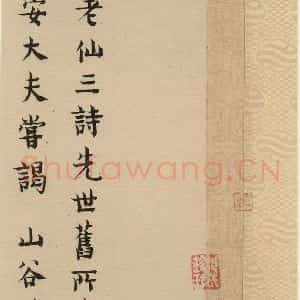 老仙三詩先世舊所
安大夫嘗謁山谷
Shufawang.CN